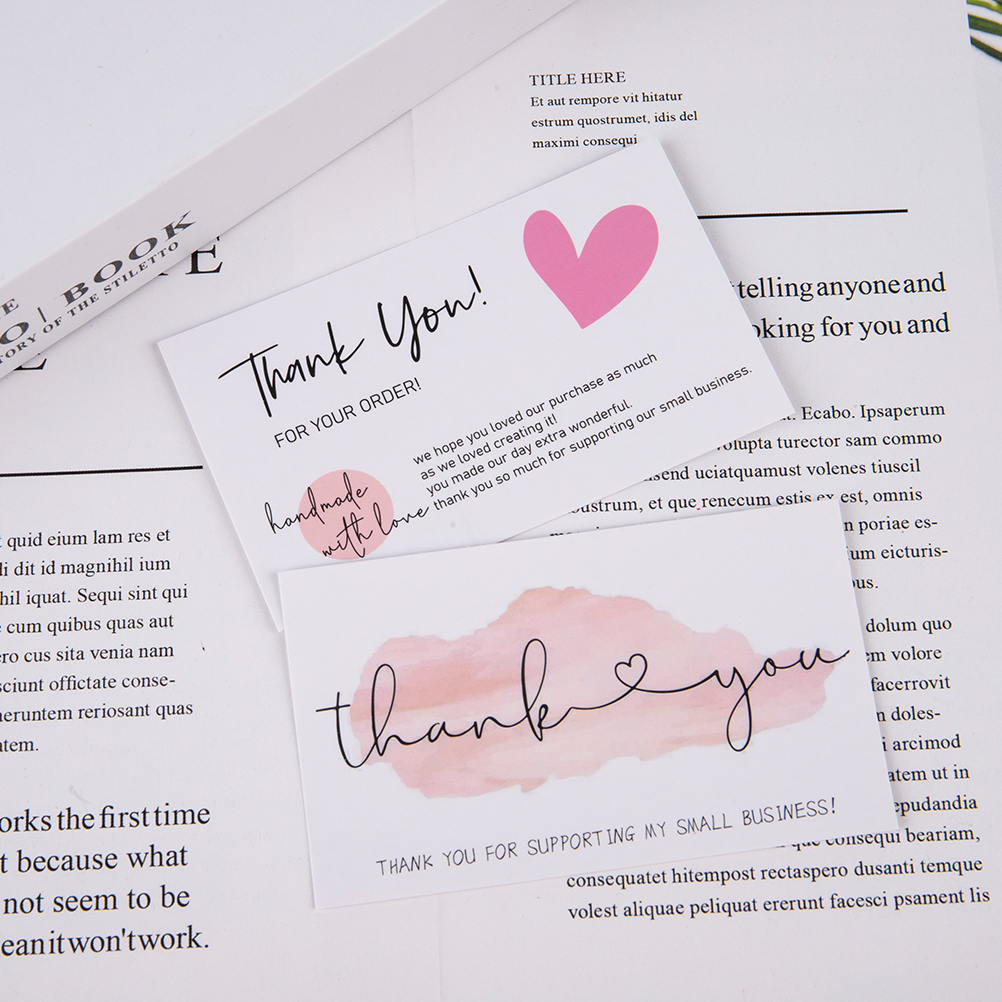 TITLE HERE
Et aut rempore vit hitatur
estrum quostrumet, idis del
maximi consequi
BOOK
TORY OF THE STILETTO
Thank You!
FOR YOUR ORDER!
we hope you loved our purchase as much
as we loved creating it!
you made our day extra wonderful.
thank you so much for supporting our small business.
handmade
with love
thank you
THANK YOU FOR SUPPORTING MY SMALL BUSINESS!
telling anyone and
oking for you and
. Ecabo. Ipsaperum
volupta turector sam commo
send uciatquamust volenes tiuscil
ustrum, et que renecum estis ex est, omnis
n poriae es-
um eicturis-
us.
dolum quo
em volore
facerrovit
n doles-
i arcimod
atem ut in
epudandia
que consequ beariam,
consequatet hitempost rectaspero dusanti temque
volest aliquae peliquat ererunt facesci psament lis
t quid eium lam res et
li dit id magnihil ium
hil iquat. Sequi sint qui
e cum quibus quas aut
ro cus sita venia nam
sciunt offictate conse-
neruntem reriosant quas
atem.
orks the first time
t because what
not seem to be
ean it won't work.